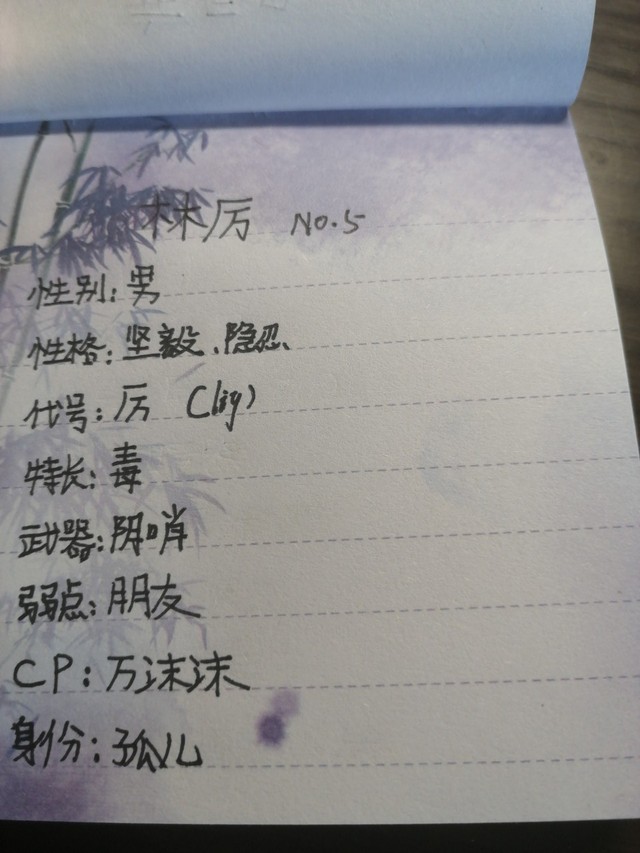 林厉 NO.5
性别：男
性格：坚毅、隐忍、
代号：厉 (liy)
特长：毒
武器：阴哨
弱点：朋友
CP：万沫沫
身份：孤儿